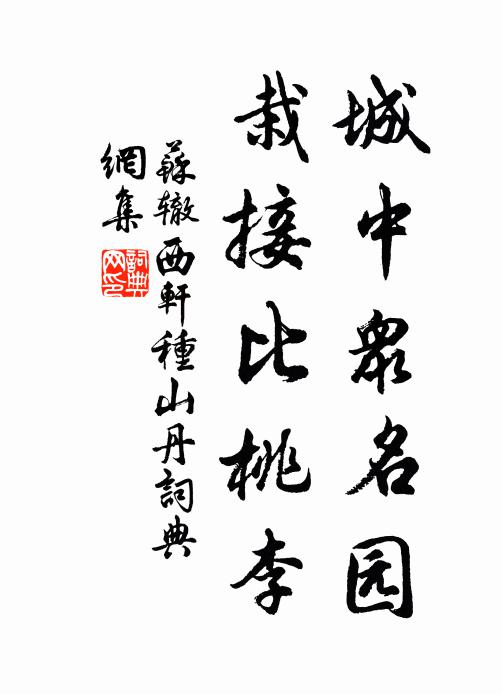 城中衆名园
栽接比桃李
蘇辙西軒種山丹詞典
網集
詞典
网印